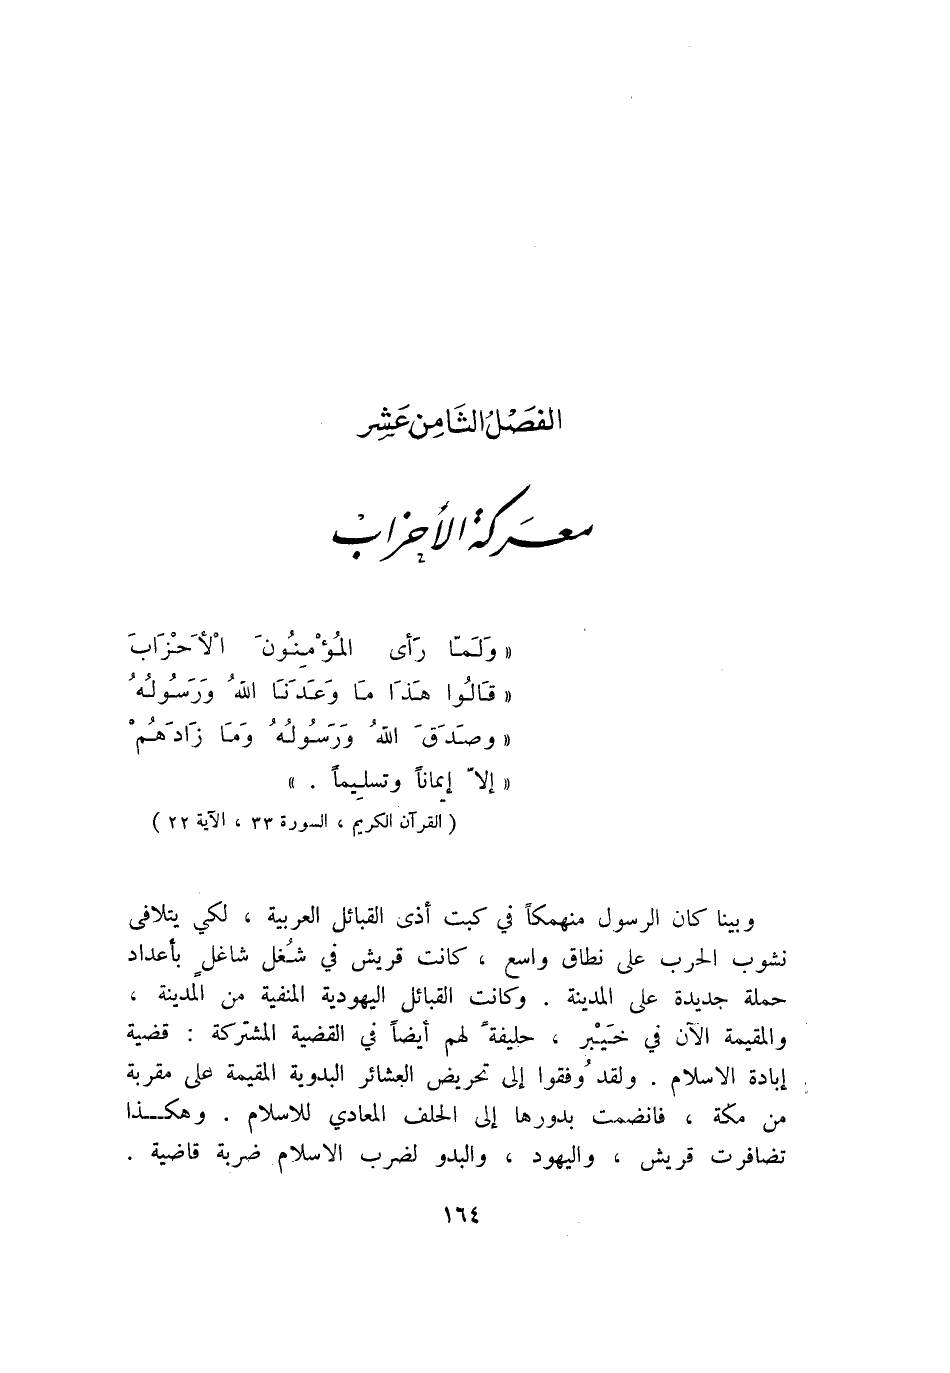 الفَصْلُ الثَّامِن عَشِر
معَركة الأحزابْ
« وَلَـمّا رَأى المُؤْمِنُونَ الْأَحْزَابَ
« قَالُوا هَذَا مَا وَعَدَنَا اللهُ وَرَسُولُهُ
« وصَدَقَ اللهُ وَرَسُولُهُ وَمَا زَادَهُمْ
« إلاّ إيماناً وتسليماً . »
( القرآن الكريم ، السورة ٣٣ ، الآية ٢٢ )
وبينا كان الرسول منهمكاً في كبت أذى القبائل العربية ، لكي يتلافى
نشوب الحرب على نطاق واسع ، كانت قريش في شُغل شاغلٍ بأعداد
حملة جديدة على المدينة . وكانت القبائل اليهودية المنفية من المدينة ،
والمقيمة الآن في خَيْبر ، حليفةً لهم أيضاً في القضية المشتركة : قضية
إبادة الاسلام . ولقد وُفقوا إلى تحريض العشائر البدوية المقيمة على مقربة
من مكة ، فانضمت بدورها إلى الحلف المعادي للاسلام . وهكـــذا
تضافرت قريش ، واليهود ، والبدو لضرب الاسلام ضربة قاضية .
١٦٤